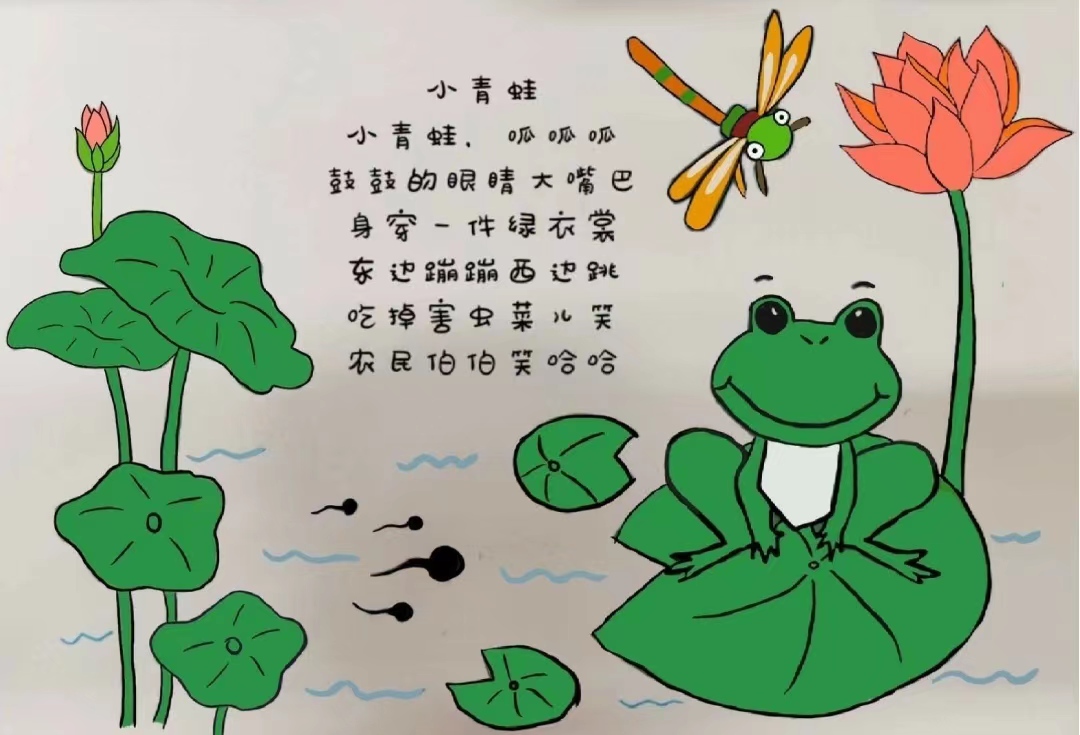 小青蛙
小青蛙，呱呱呱
鼓鼓的眼睛大嘴巴
身穿一件绿衣裳
东边蹦蹦西边跳
吃掉害虫菜儿笑
农民伯伯笑哈哈